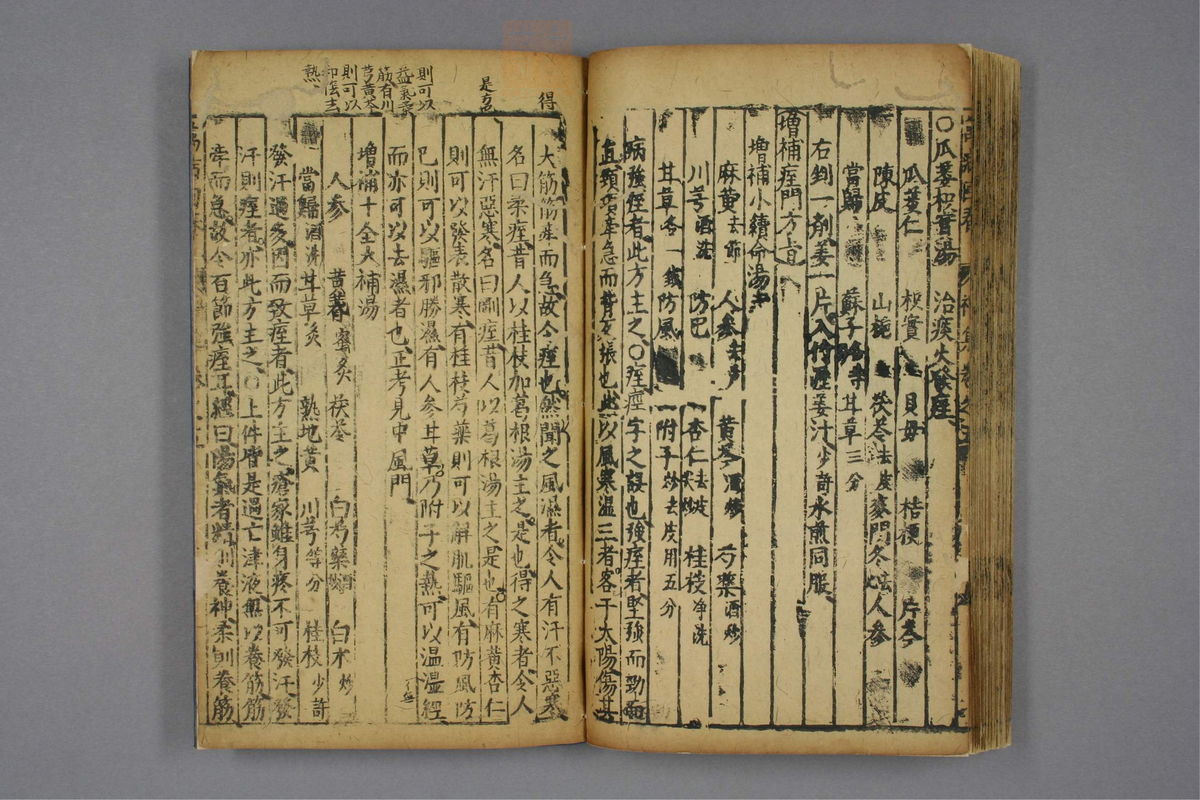 〇瓜蔞枳實湯 治痰火發痙
瓜蔞仁 枳實 貝母 桔梗 片芩
陳皮 山梔 茯苓去皮 麥門冬 人參
當歸 蘇子 甘草三分
右剉一劑姜一片入竹瀝姜汁少許水煎同服
增補痙門方旨
增補小續命湯
麻黄去節 人參去 黄芩酒炒 芍藥酒炒
川芎酒洗 防巳 杏仁去皮 桂枝净洗
甘草各一錢 防風 附子炒去皮用五分
病強痙者此方主之〇痓痙字之誤也強痙者堅強而勁
直頸項牽急而背反張也此以風寒濕三者客于太陽傷其
大筋筋牽而急故令痙也然聞之風濕者令人有汗不惡寒
名曰柔痙昔人以桂枝加葛根湯主之是也得之寒者令人
無汗惡寒名曰剛痙昔人以葛根湯主之是也有麻黄杏仁
則可以發表散寒有桂枝芍藥則可以解肌驅風有防風防
巳則可以驅邪勝濕有人參甘草乃附子之熱可以温濕經
而亦可以去濕者也正考見中風門
增補十全大補湯
人參 黄蓍蜜炙 茯苓 白芍藥 白朮炒
當歸酒洗 甘草炙 熟地黄 川芎等分 桂枝少許
發汗過多因而致痙者此方主之瘡家雖身疼不可發汗發
汗則痙者亦此方主之〇上件皆是過亡津液無以養筋筋
牽而急故令百節強痙耳經曰陽氣者精則養神柔則養筋
得
是方也
則可以
益氣
筋有川
芎黄芩
則可以
和陰去
熱